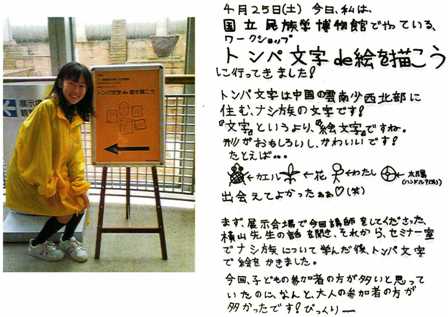 4月25日(土) 今日、私は、
国立民族学博物館でやっている、
ワークショップ
トンパ文字 de 絵を描こう
に行ってきました!
トンパ文字は中国の雲南少西北部に
住む、ナシ族の文字です!
"文字"というより、"絵文字"ですね。
形がおもしろいし、かわいいです!
たとえば・・
←カエル ←花 ←わたし ←太陽
(ハンドルではない)
出会えてよかったぁぁ♡(笑)
まず、展示会場で今回講師をしてくださった、
横山先生のお話を聞き、それから、セミナー室
でナシ族について学んだ後、トンパ文字
で絵をかきました。
今回、子どもの参加者の方が多いと思って
いたのに、なんと、大人の参加者の方が
多かったです!びっくりー
トンパ文字 de 絵を描こう